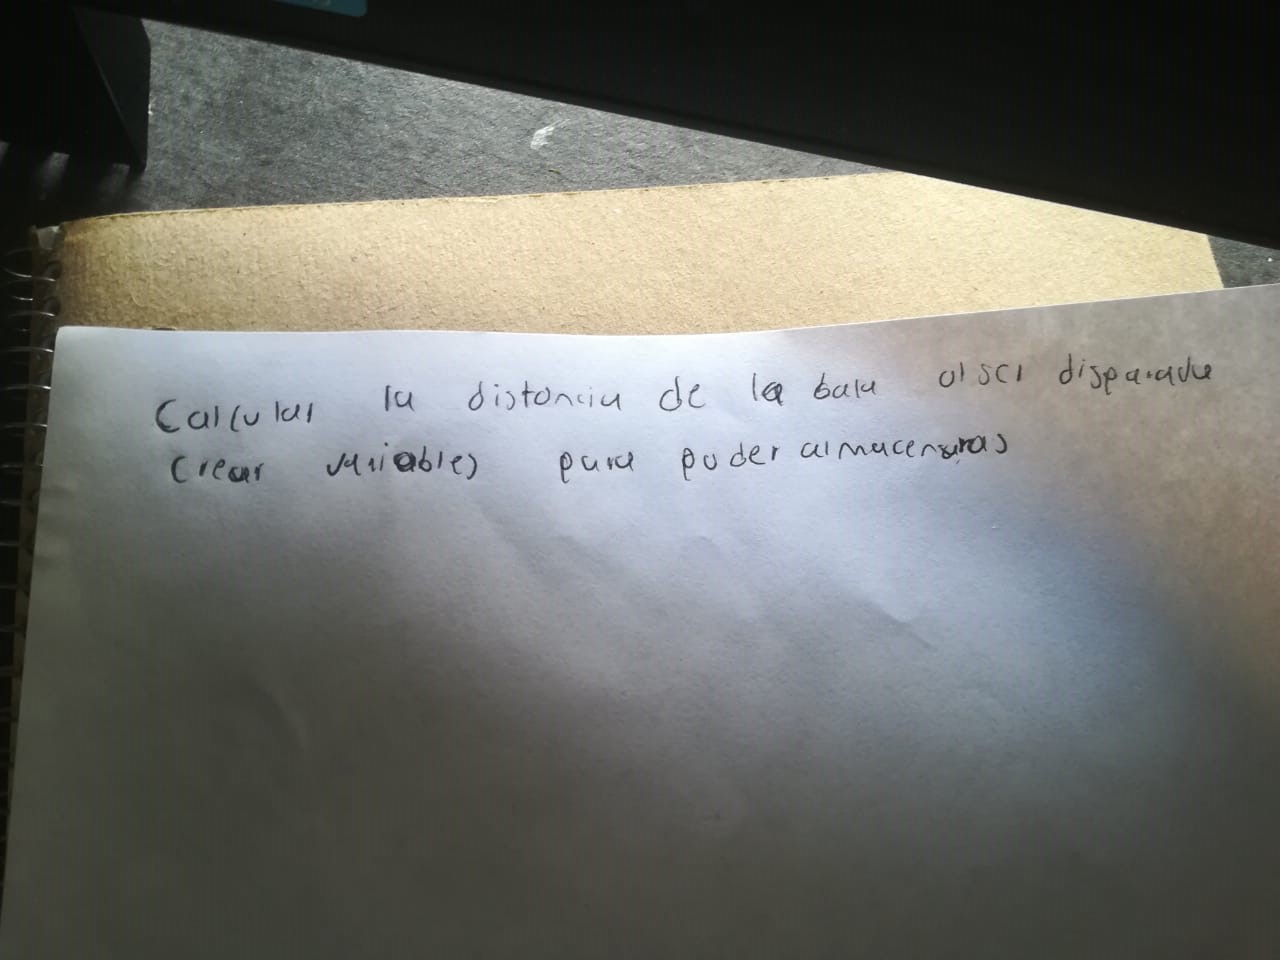 Calcular la distancia de la bala al ser disparada
Crear variables para poder almacenaras